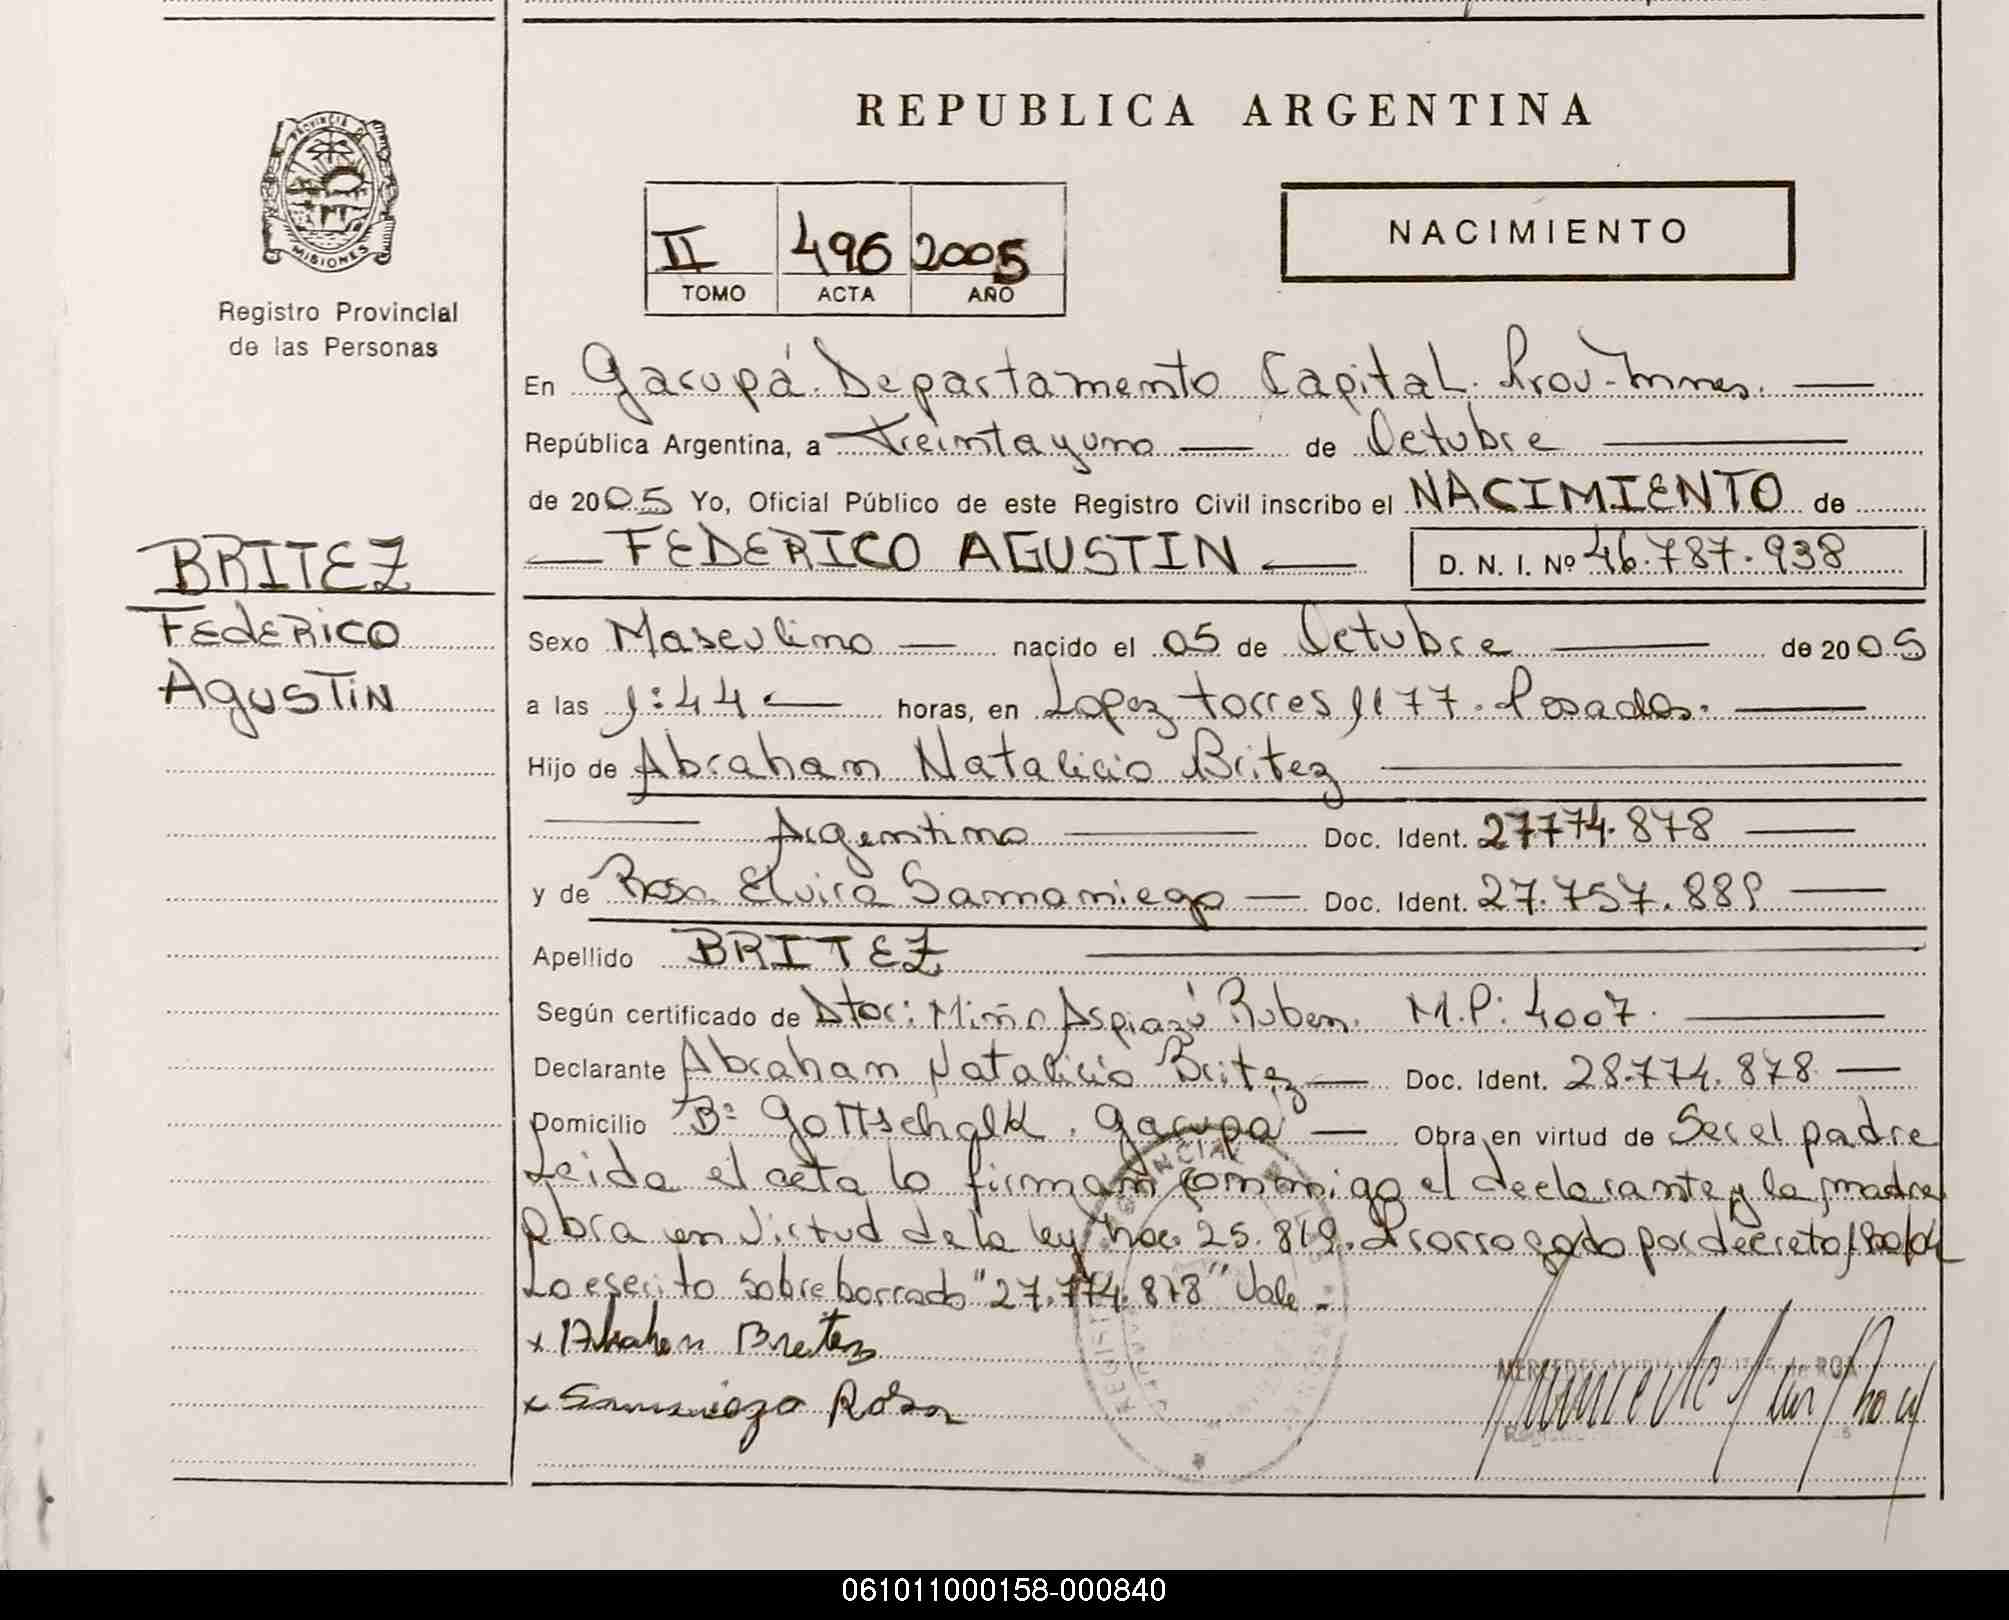 PROVINCIA DE
MISIONES
Registro Provincial
de las Personas
BRITEZ
FEdERico
AgusTiN
REPUBLICA ARGENTINA
II 496 2005
TOMO ACTA AÑO
NACIMIENTO
En Garupá. Departamento Capital. Prov. Mnes.
República Argentina, a treinta y uno de Octubre
de 2005 Yo, Oficial Público de este Registro Civil inscribo el NACIMIENTO de
FEDERICO AGUSTIN D. N. I. Nº 46.787.938
Sexo Masculino nacido el 05 de Octubre de 2005
a las 9:44 horas, en Lopez torres 1177. Posadas.
Hijo de Abraham Natalicio Britez
Argentino Doc. Ident. 27.774.878
y de Rosa Elvira Samaniego Doc. Ident. 27.757.889
Apellido BRITEZ
Según certificado de Dtor: Miño Aspiazú Ruben. M.P: 4007.
Declarante Abraham Natalicio Britez Doc. Ident. 28.774.878
Domicilio Bº Gottschalk. Garupá Obra en virtud de Ser el padre
Leida el acta la firman conmigo el declarante y la madre
obra en virtud de la ley nro. 25.819. Prorrogado por decreto
Lo escrito sobre borrado "27.774.878" Vale.
x Abrahan Britez
x Samaniego Rosa
061011000158-000840